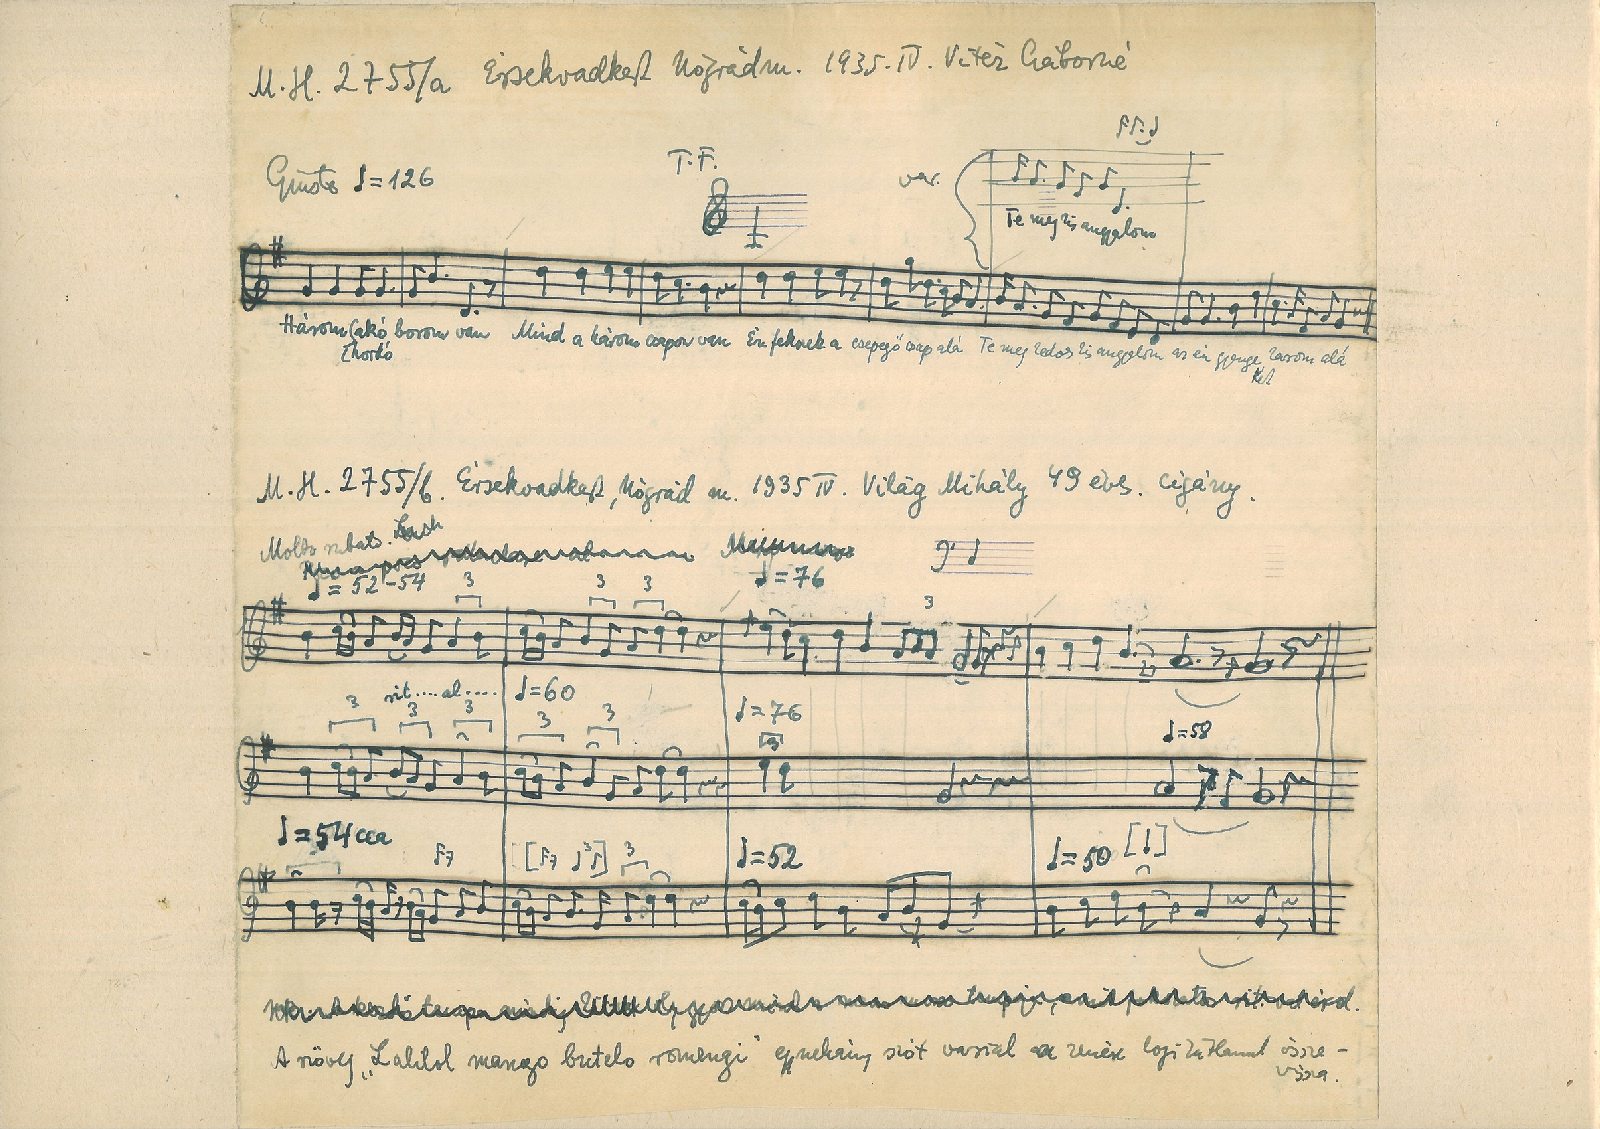 M.H. 2755/a Érsekvadkert Nógrád m. 1935. IV. Vitéz Gáborné
Giusto ♩=126
T.F.
var.
Te meg is angyalom
Három csakó borom van Mind a három csapon van Én feknek a csepegő csap alá Te meg is angyalom az én gyenge karom alá
Chordó
M.H. 2755/b. Érsekvadkert, Nógrád m. 1935 IV. Világ Mihály 49 éves. cigány.
Molto rubato.
♩=52-54
♩=76
3 3 3 3
rit....al....
♩=60
♩=76
♩=58
3 3 3 3 3 3
♩=54 cca
3
♩=52
♩=50
A szöveg „Lalilol mango butelo romengi" egynehány szót variál a zenész össze-
vissza.